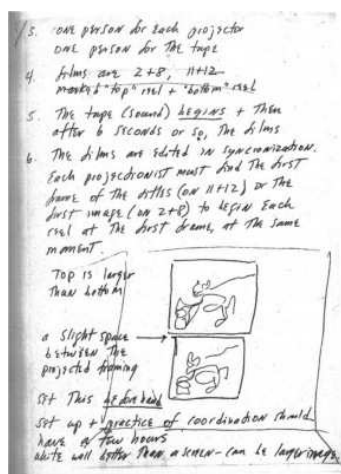 3. one person for each projector
one person for the tape
4. films are 2+8, 11+12
marked "top" reel + "bottom" reel
5. The tape (sound) begins + then
after 6 seconds or so, the films
6. The films are edited in syncronization.
Each projectionist must find the first
frame of the titles (on 11+12) or the
first image (on 2+8) to begin each
reel at the first frame, at the same
moment.
Top is larger
than bottom
a slight space
between the
projected framing
set this beforehand
set up + practice of coordination should
have a few hours
white wall better than a screen - can be larger image